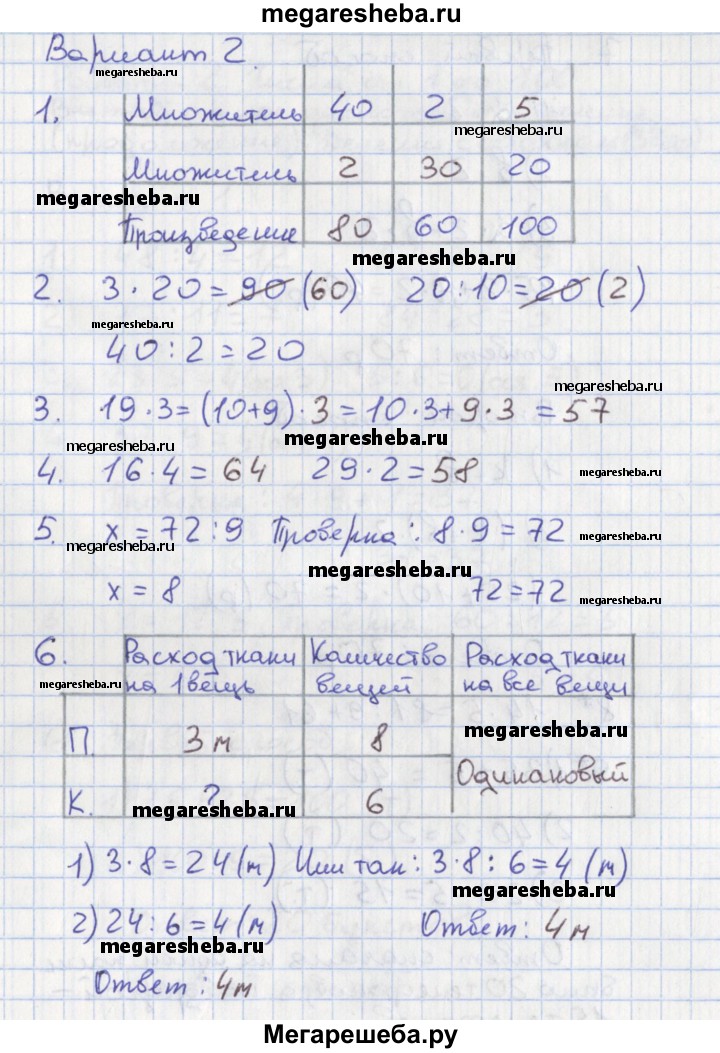 megaresheba.ru
Вариант 2
megaresheba.ru
1. Множитель 40 2 5
megaresheba.ru
Множитель 2 30 20
megaresheba.ru
Произведение 80 60 100
megaresheba.ru
2. 3 · 20 = 90 (60) 20 : 10 = 20 (2)
megaresheba.ru
40 : 2 = 20
megaresheba.ru
3. 19 · 3 = (10+9) · 3 = 10 · 3 + 9 · 3 = 57
megaresheba.ru
megaresheba.ru
4. 16 · 4 = 64 29 · 2 = 58 megaresheba.ru
5. x = 72 : 9 Проверка : 8 · 9 = 72 megaresheba.ru
megaresheba.ru
megaresheba.ru
x = 8 72 = 72 megaresheba.ru
6. Расход ткани Количество Расход ткани
megaresheba.ru на 1 вещь вещей на все вещи
П. 3 м 8 megaresheba.ru
Одинаковый
К. ? 6
megaresheba.ru
1) 3 · 8 = 24 (м) Или так : 3 · 8 : 6 = 4 (м)
megaresheba.ru
2) 24 : 6 = 4 (м) Ответ : 4 м
megaresheba.ru
Ответ : 4 м
Мегарешеба.ру